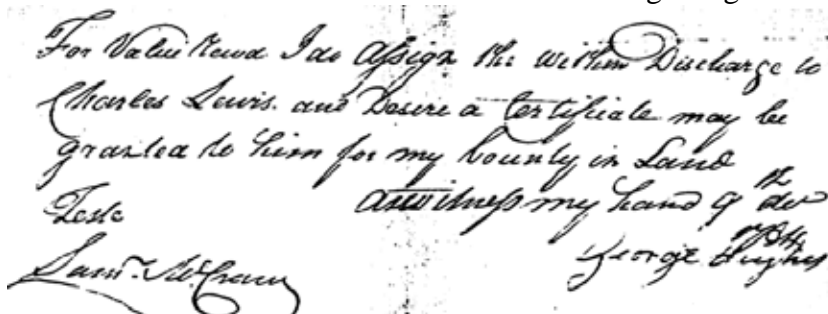 For Value Recvd I do assign the within Discharge to
Charles Lewis. and Desire a Certificate may be
granted to him for my bounty in Land
Teste as witness my hand 9th
Saml. McCraw George Hughes